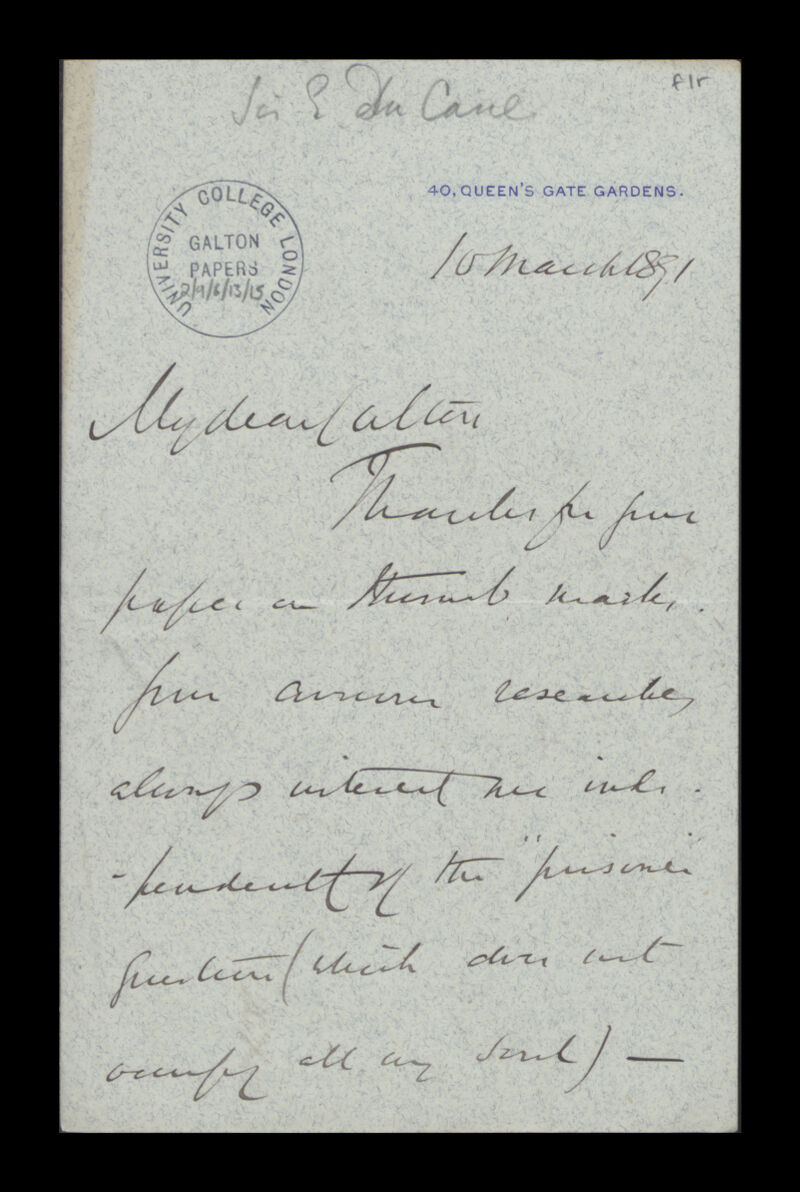 f1r
Sir E Du Cane
40, QUEEN'S GATE GARDENS.
UNIVERSITY COLLEGE LONDON
GALTON
PAPERS
2/9/6/13/15
10 March 1891
My dear Galton
Thanks for your
paper on thumb marks.
Your curious researches
always interest me inde-
-pendently of the "prisoner"
question (which does not
occupy all my soul) —